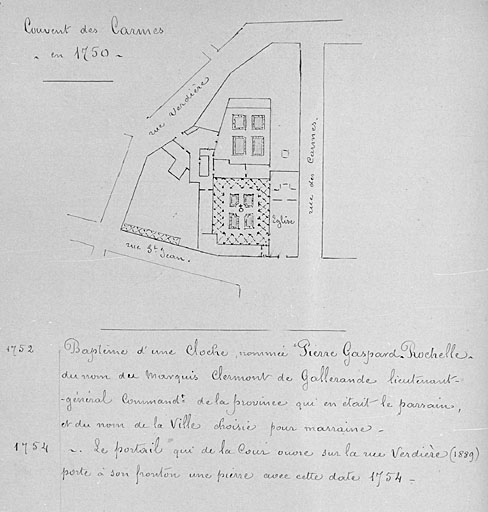 Couvent des Carmes
- en 1750 -
rue Verdière
rue des Carmes.
Eglise
rue St Jean.
1752 Baptême d'une Cloche, nommée "Pierre Gaspard-Rochelle-
du nom du Marquis Clermont de Gallerande lieutenant-
-général Commandt de la province qui en était le parrain,
et du nom de la Ville choisie pour marraine -
1754 -. Le portail qui de la Cour ouvre sur la rue Verdière (1889)
porte à son fronton une pierre avec cette date 1754 -